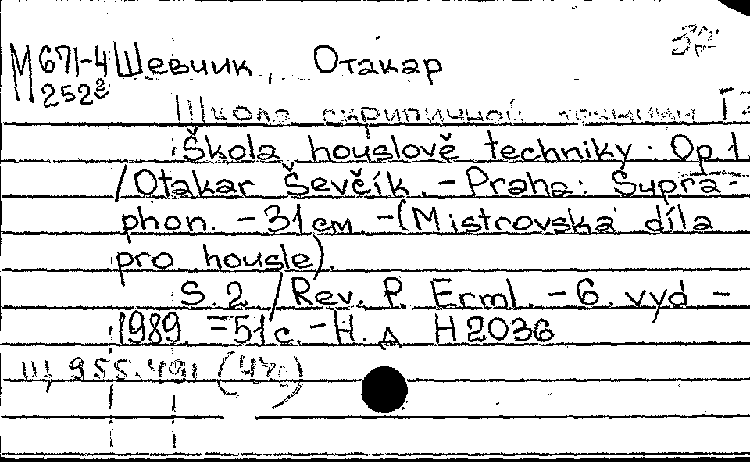 М 671-4 Шевчик, Отакар
252г
Школа скрипичной техники
Škola houslové techniky. Op. 1
/Otakar Ševčík. – Praha: Supra-
phon. – 31 см. – (Mistrovská díla
pro housle).
S. 2 / Rev. P. Erml. – 6. vyd –
1989. – 51 с. – Н. д. H 2036